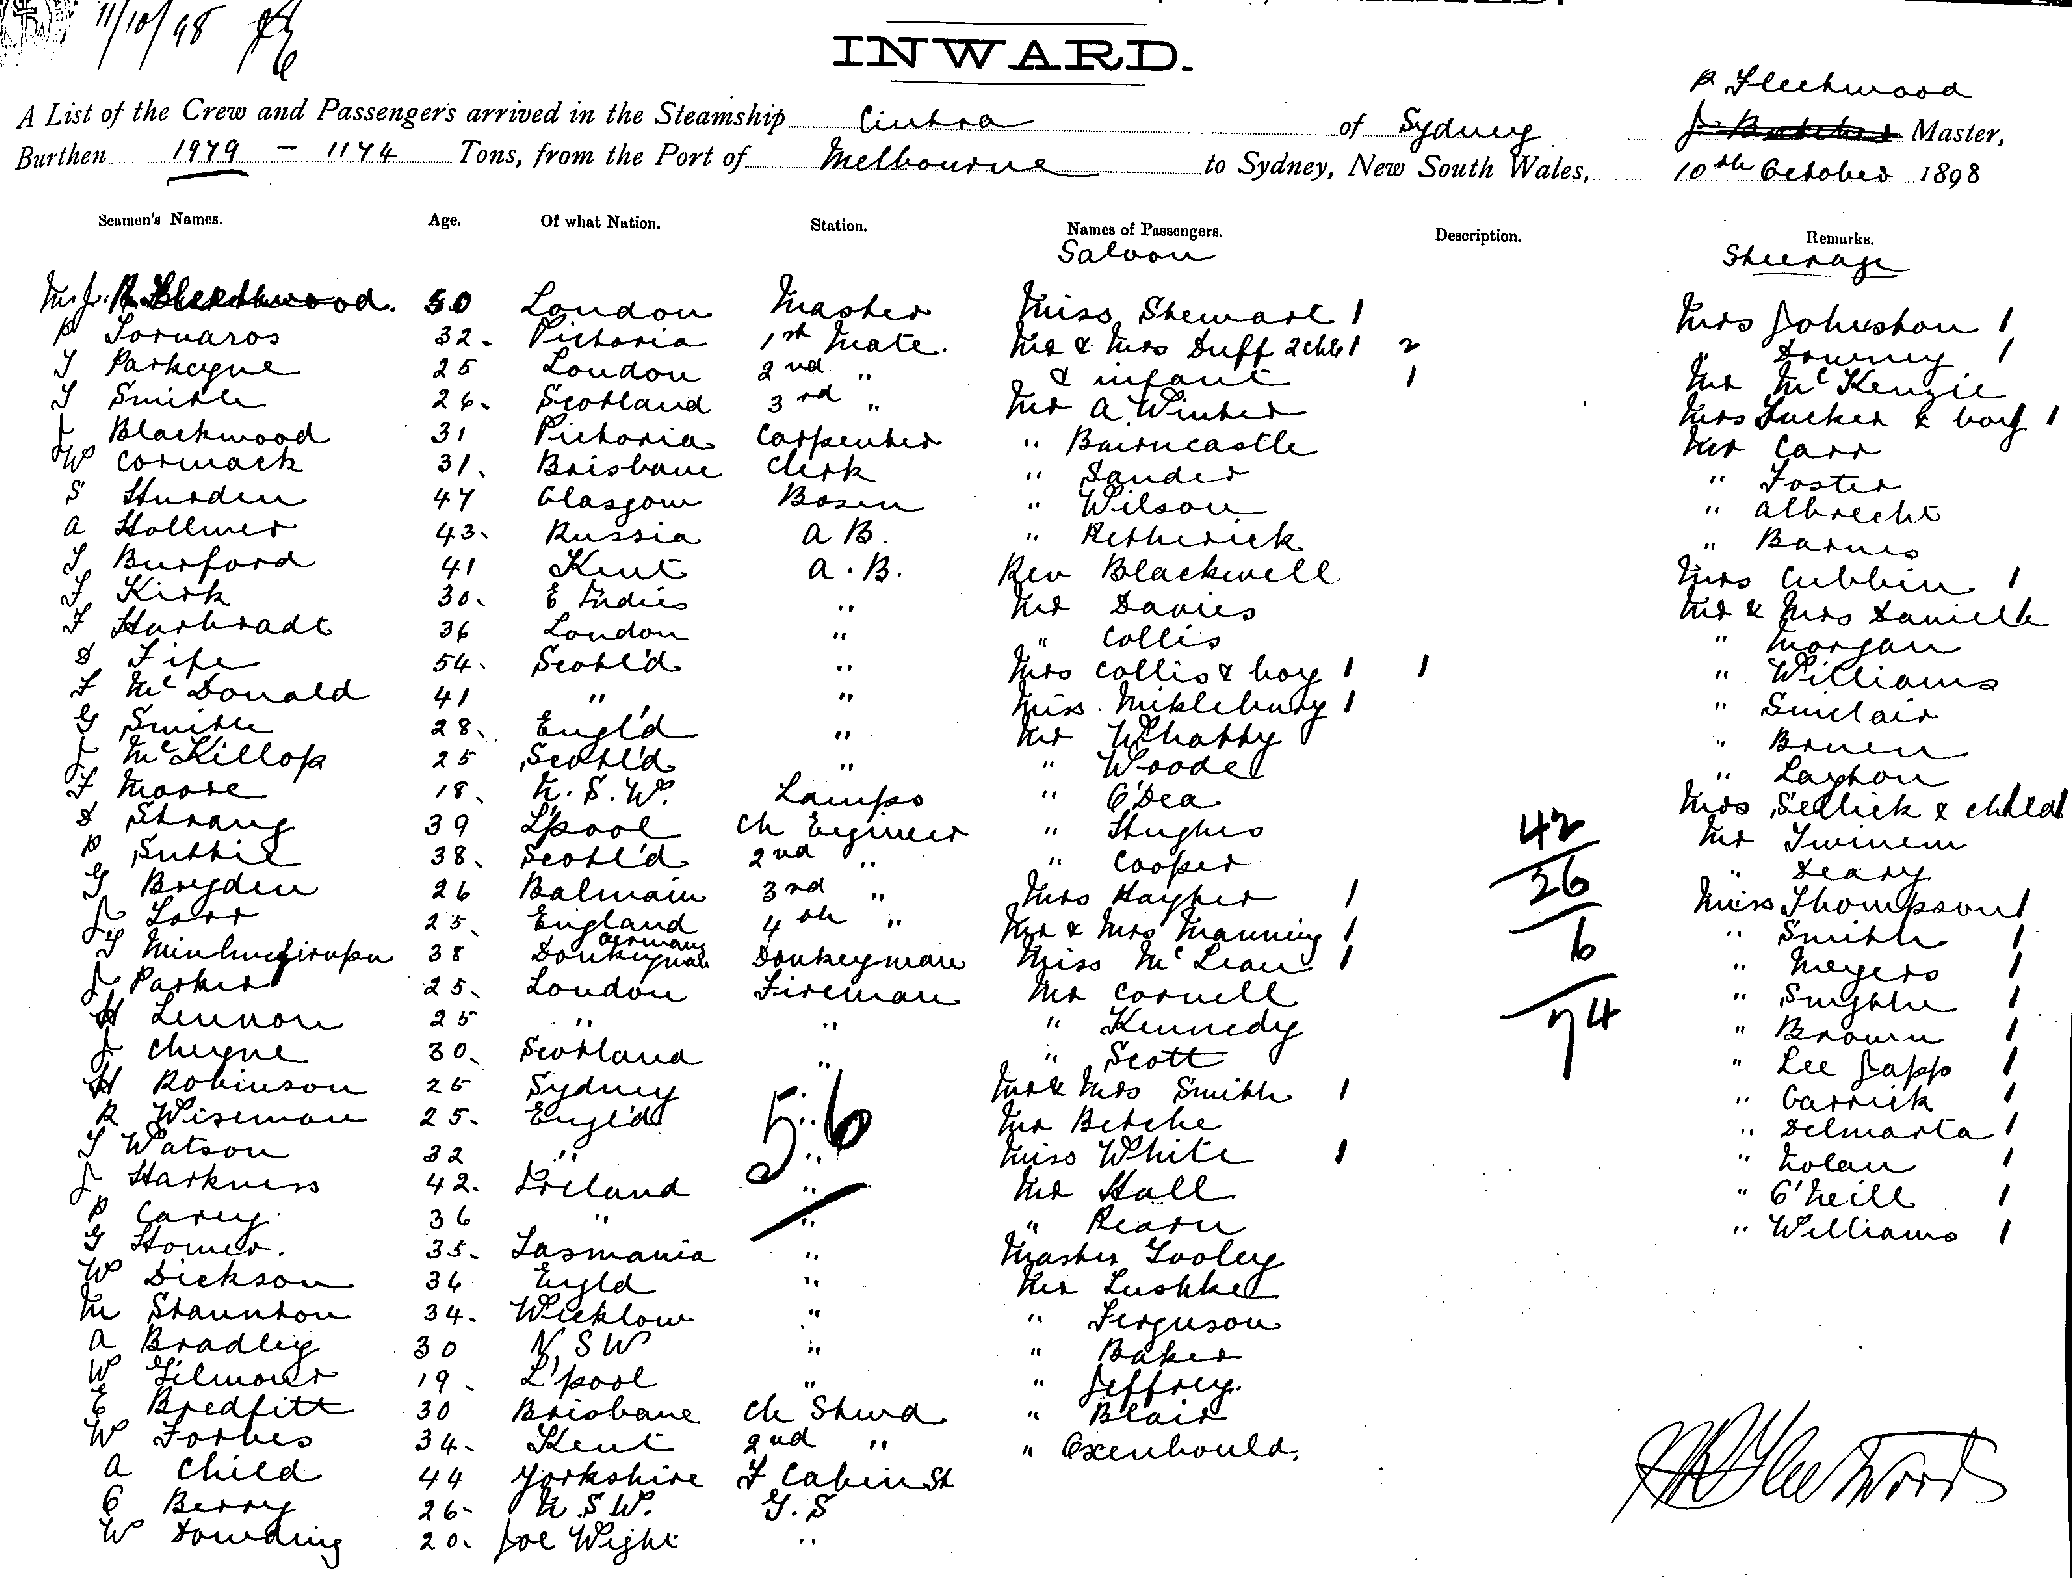 11/10/98
INWARD.
P Fleetwood
A List of the Crew and Passengers arrived in the Steamship Cintra of Sydney Master,
Burthen 1979 - 1174 Tons, from the Port of Melbourne to Sydney, New South Wales, 10th October 1898
Seamen's Names. Age. Of what Nation. Station. Names of Passengers. Description. Remarks.
Saloon Steerage
Fleetwood. 50 London Master Miss Stewart 1 Mrs Johnston 1
P 32. Victoria 1st Mate. Mr & Mrs Duff 2 chd 1 2 " Downey 1
T Parkeyne 25 London 2nd " & infant 1 Mr McKenzie
T Smith 26. Scotland 3rd " Mr A Winter Mrs Tucker & boy 1
J Blackwood 31 Victoria Carpenter " Bairncastle Mr Carr
W Cormack 31. Brisbane Clerk " Sander " Foster
S Hurden 47 Glasgow Bosen " Wilson " Albrecht
A Hollmer 43. Russia A B. " Retherick " Barnes
T Burford 41 Kent A. B. Rev Blackwell Mrs Cubbin 1
T Kirk 30. E Indies " Mr Davies Mr & Mrs Danielle
F Harbradt 36 London " " Collis " Morgan
D Fife 54. Scotl'd " Mrs Collis & boy 1 1 " Williams
F McDonald 41 " " Miss Mikleburg 1 " Sinclair
G Smith 28. Engl'd " Mr Whatty " Bruen
J McKillop 25 Scotl'd " " Woode " Layton
F Moore 18. N. S. W. Lamps " O'Dea Mrs Sellick & child 1
D Strang 39 L'pool Ch Engineer " Hughes 42 Mr Twinem
P Suttie 38. Scotl'd 2nd " " Cooper 26 " Deary
G Bryden 26 Balmain 3rd " Mrs Hayter 1 6 Miss Thompson 1
J Lorr 25. England 4th " Mr & Mrs Manning 1 74 " Smith 1
T 38 Germany Donkeyman Donkeyman Miss McLean 1 " Meyers 1
J Parker 25. London Fireman Mr Cornell " Smythe 1
H Lennon 25 " " " Kennedy " Brown 1
J Cheyne 30. Scotland " " Scott " Lee Japp 1
H Robinson 25 Sydney " Mr & Mrs Smith 1 " Garrick 1
R Wiseman 25. Engl'd " Mr Betche " Delmarta 1
T Watson 32 " " Miss White 1 " Nolan 1
J Harkness 42. Ireland " Mr Hall " O'Neill 1
P Carey 36 " " " Hearn " Williams 1
56
G Homer. 35. Tasmania " Master Tooley
W Dickson 36 Engld " Mr Lushke
M Staunton 34. Wicklow " " Ferguson
A Bradley 30 N S W " " Baker
W Gilmour 19. L'pool " " Jeffrey.
E Bredfitt 30 Brisbane Ch Stwd " Blair
W Forbes 34. Kent 2nd " " Oxenbould.
A Child 44 Yorkshire F Cabin St
C Berry 26. N. S. W. G. S
W Downding 20. Joe Wight "
Fleetwood